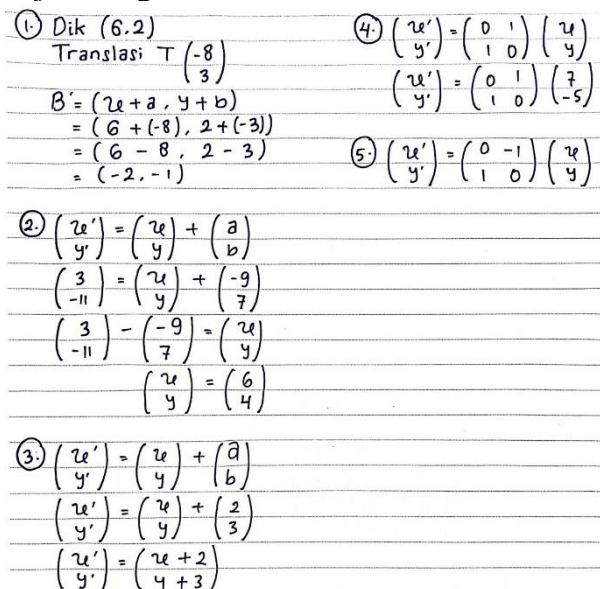 1. Dik (6.2)
Translasi T (-8
3)
B' = (x + a , y + b)
= (6 + (-8), 2 + (-3))
= (6 - 8 , 2 - 3)
= (-2, -1)
2. (x' y') = (x y) + (a b)
(3 -11) = (x y) + (-9 7)
(3 -11) - (-9 7) = (x y)
(x y) = (6 4)
3. (x' y') = (x y) + (a b)
(x' y') = (x y) + (2 3)
(x' y') = (x + 2 y + 3)
4. (x' y') = (0 1 1 0) (x y)
(x' y') = (0 1 1 0) (7 -5)
5. (x' y') = (0 -1 1 0) (x y)